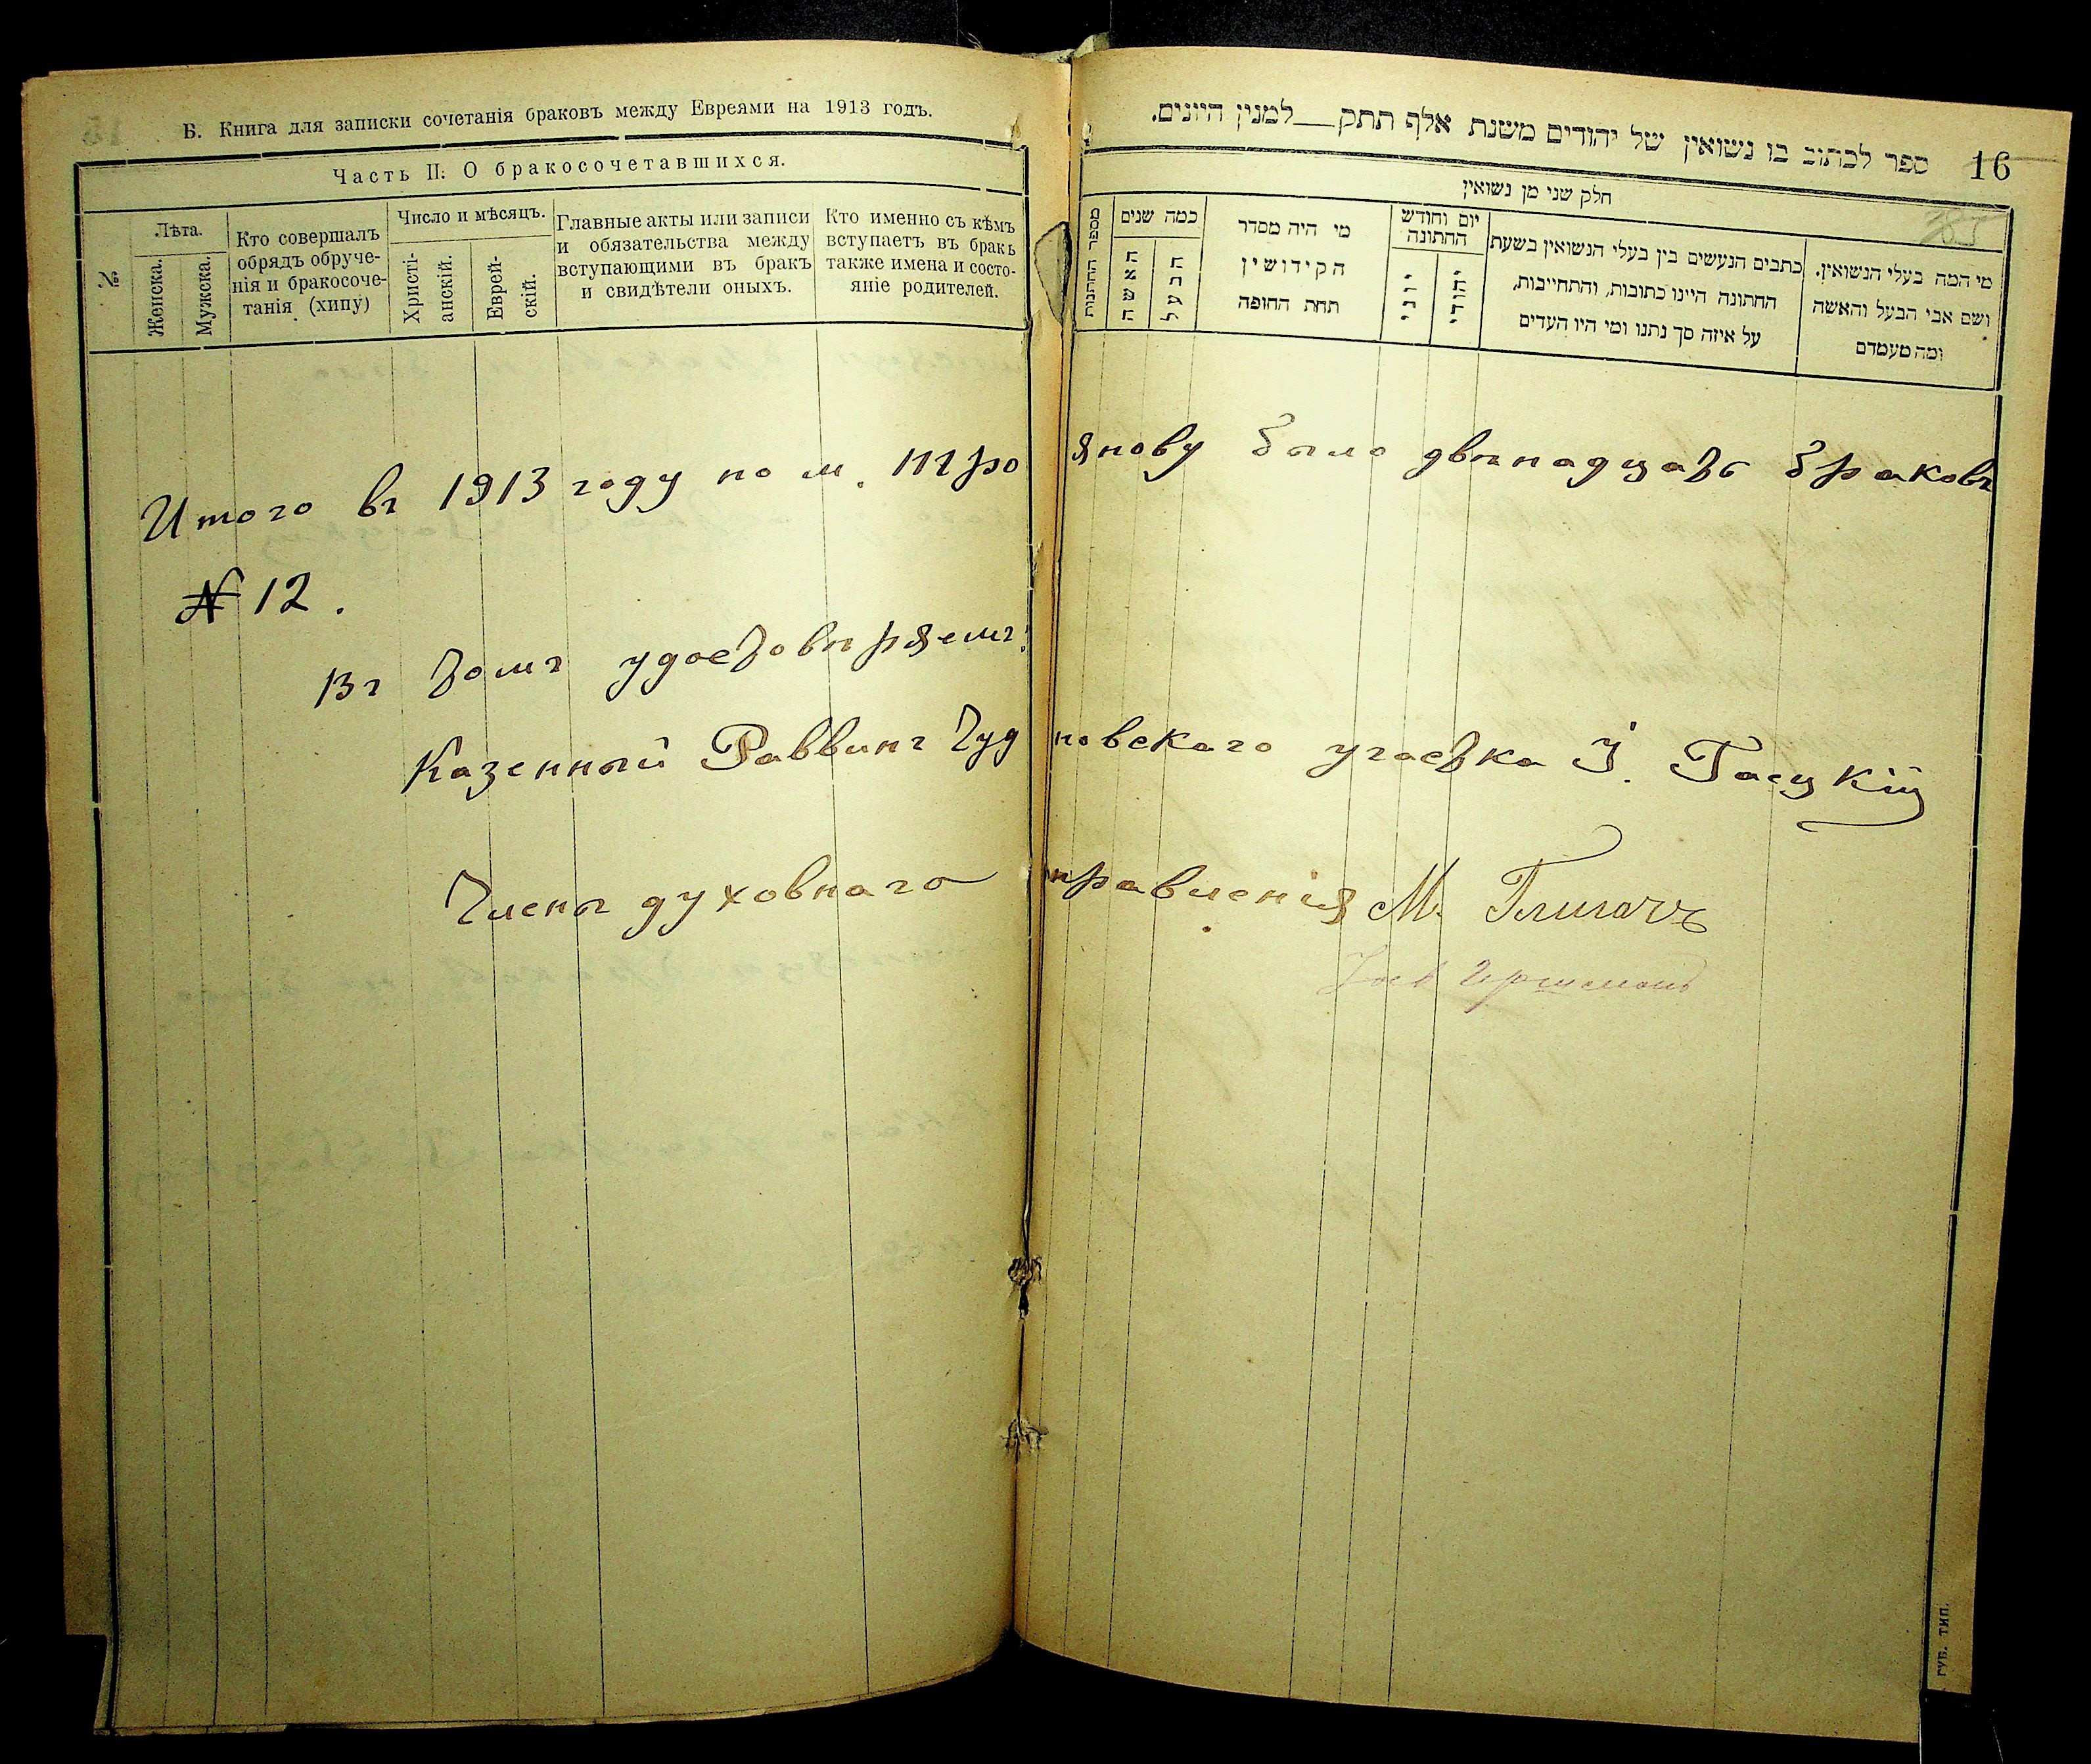 Б. Книга для записки сочетанія браковъ между Евреями на 1913 годъ.
Часть II: О бракосочетавшихся.
№
Лѣта.
Женска.
Мужска.
Кто совершалъ
обрядъ обруче-
нія и бракосоче-
танія (хипу)
Число и мѣсяцъ.
Христі-
анскій.
Еврей-
скій.
Главные акты или записи
и обязательства между
вступающими въ бракъ
и свидѣтели оныхъ.
Кто именно съ кѣмъ
вступаетъ въ бракъ
также имена и состо-
яніе родителей.
16
ספר לכתוב בו נשואין של יהודים משנת אלף תתק__למנין היונים.
חלק שני מן נשואין
מספר החתנות
כמה שנים
האשה
הבעל
מי היה מסדר
הקידושין
תחת החופה
יום וחודש
החתונה
יוני
יהודי
כתבים הנעשים בין בעלי הנשואין בשעת
החתונה היינו כתובות, והתחייבות,
על איזה סך נתנו ומי היו העדים
מי המה בעלי הנשואין.
ושם אבי הבעל והאשה
ומה מעמדם
Итого въ 1913 году по м. Троянову было двѣнадцать браковъ
№ 12.
Въ томъ удостовѣряемъ:
Казенный Раввинъ Чудновскаго участка І. Гасцкій
Члены духовнаго правленія М.
ГУБ. ТИП.